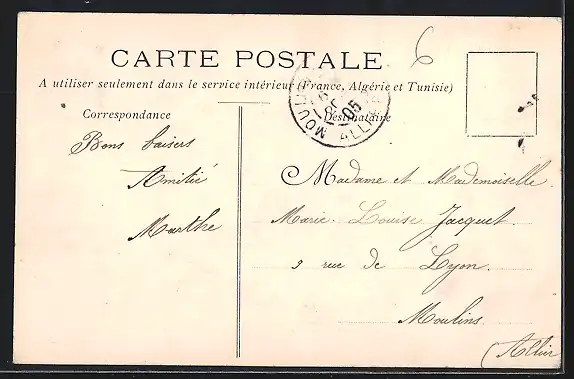 6
CARTE POSTALE
A utiliser seulement dans le service intérieur (France, Algérie et Tunisie)
Correspondance
Destinataire
MOULINS
05
ALLIER
Bons baisers
Amitié
Marthe
Madame et Mademoiselle
Marie-Louise Jacquet
3 rue de Lyon.
Moulins
(Allier